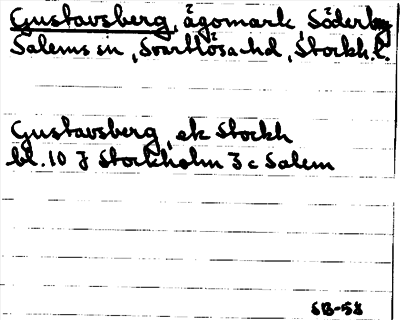 Gustavsberg, ägomark, Söderby
Salems sn, Svartlösa hd, Stockh.l.
Gustavsberg, ek Stockh
bl. 10 J Stockholm 3 c Salem
SB-58